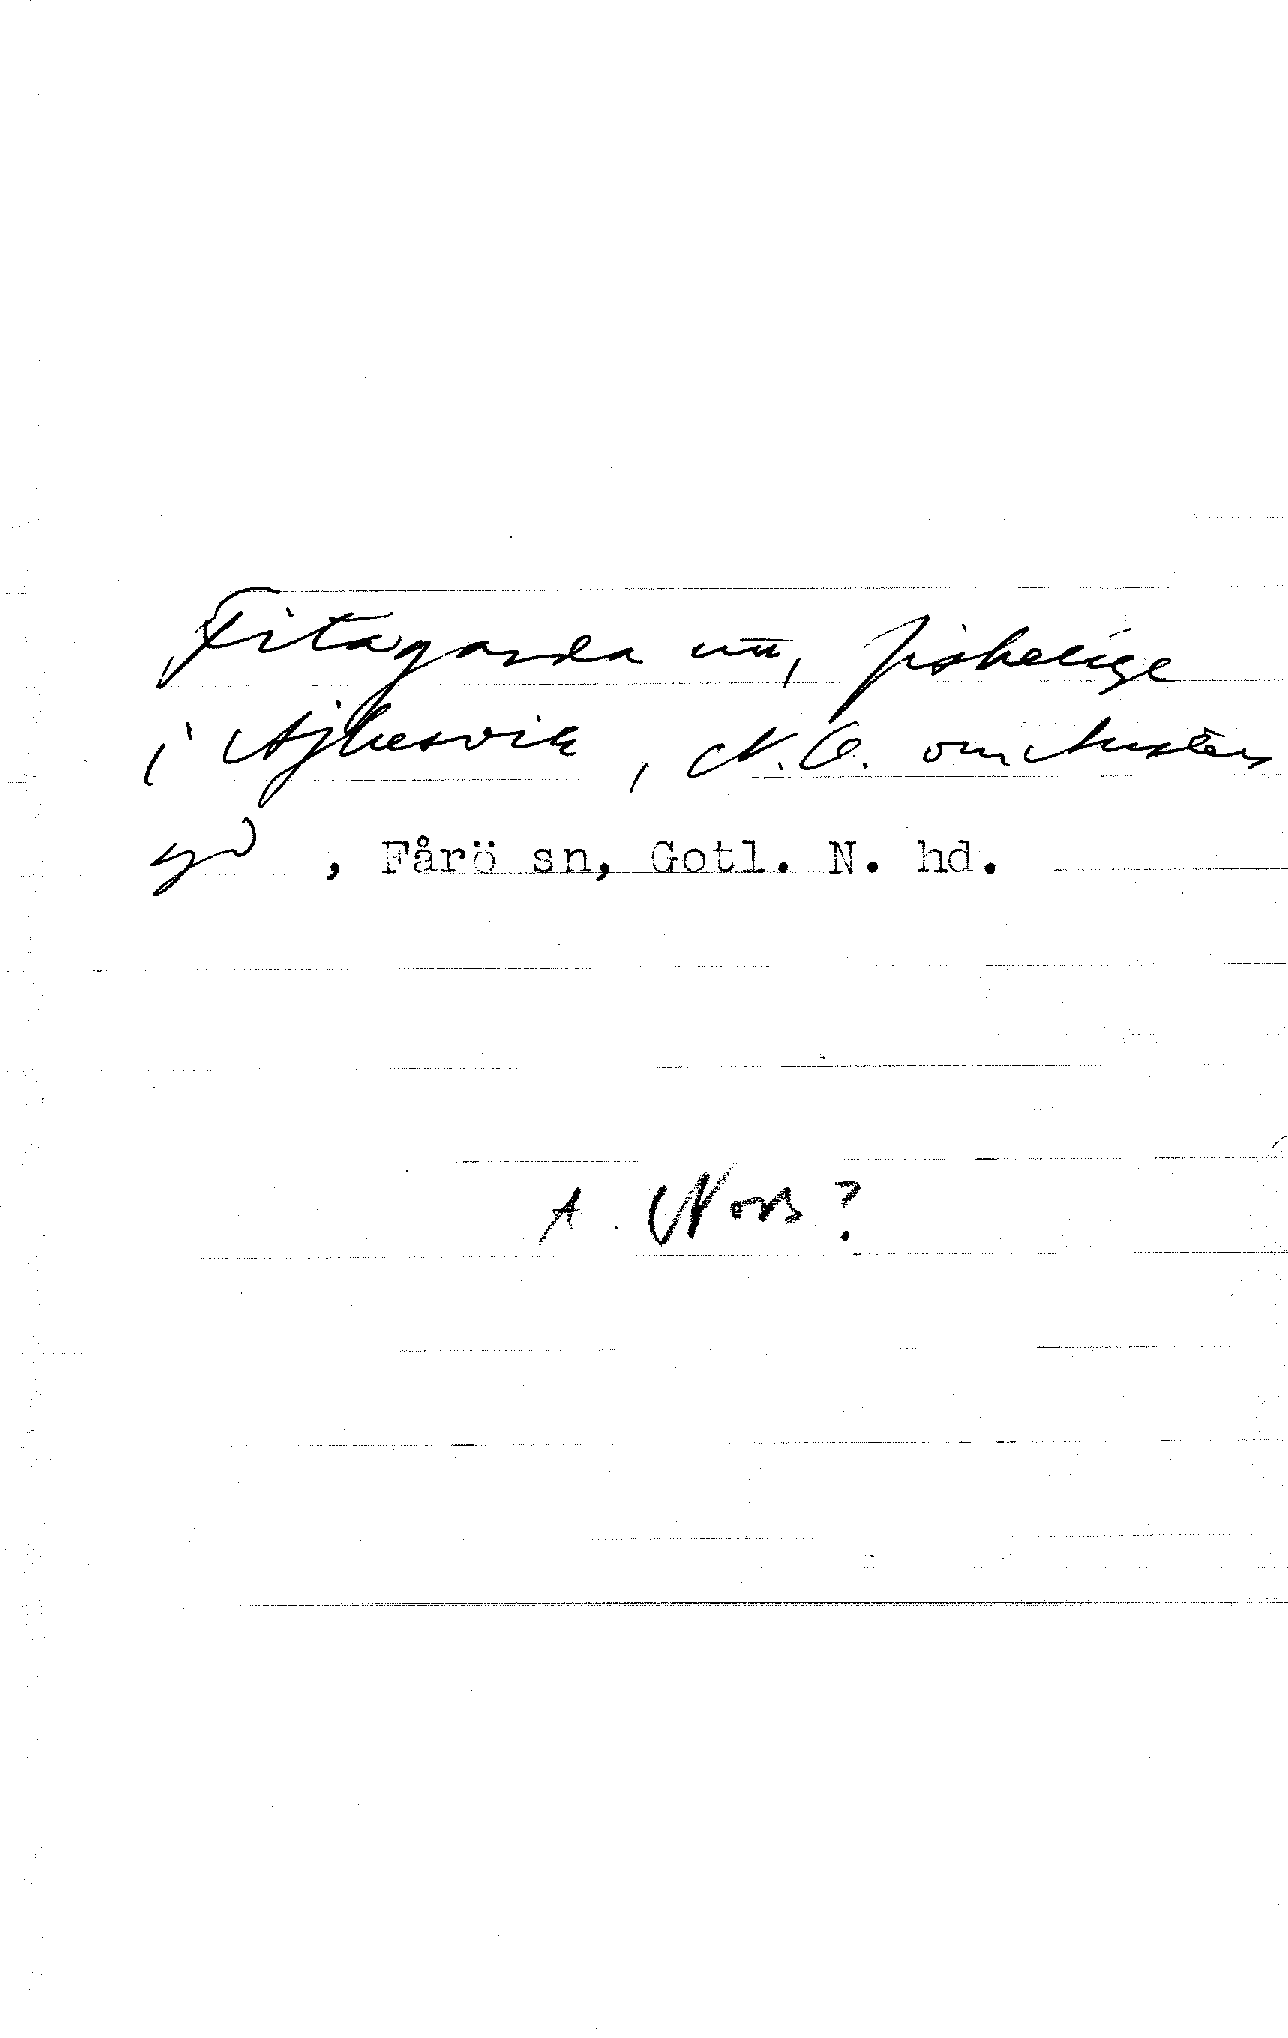 Fitagarda vik, fiskeläge
i Ajkesvik, N.O. om Austers
, Fårö sn, Gotl. N. hd.
A. Nors?